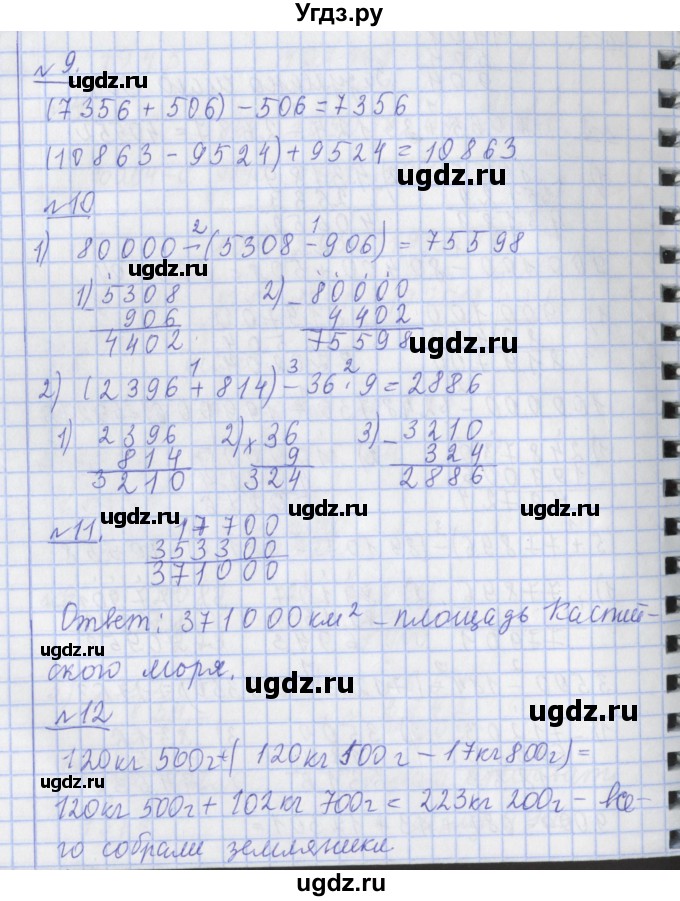 Угдз.ру
№9.
ugdz.ru
(7356 + 506) - 506 = 7356
(10863 - 9524) + 9524 = 10863
ugdz.ru
№10
2 1
1) 80000 - (5308 - 906) = 75598
ugdz.ru
1) 5308 2) - 80000
- 906 4402
4402 75598
ugdz.ru ugdz.ru
1 3 2
2) (2396 + 814) - 36 · 9 = 2886
1) 2396 2) x 36 3) - 3210
814 9 324
3210 324 2886
ugdz.ru ugdz.ru
№11. 17700
353300
371000
Ответ: 371000 км² - площадь Каспий-
ugdz.ru
ского моря.
ugdz.ru
№12
120кг 500г + (120кг 500г - 17кг 800г) =
ugdz.ru
120кг 500г + 102кг 700г = 223кг 200г - все-
го собрали земляники
ugdz.ru
ugdz.ru